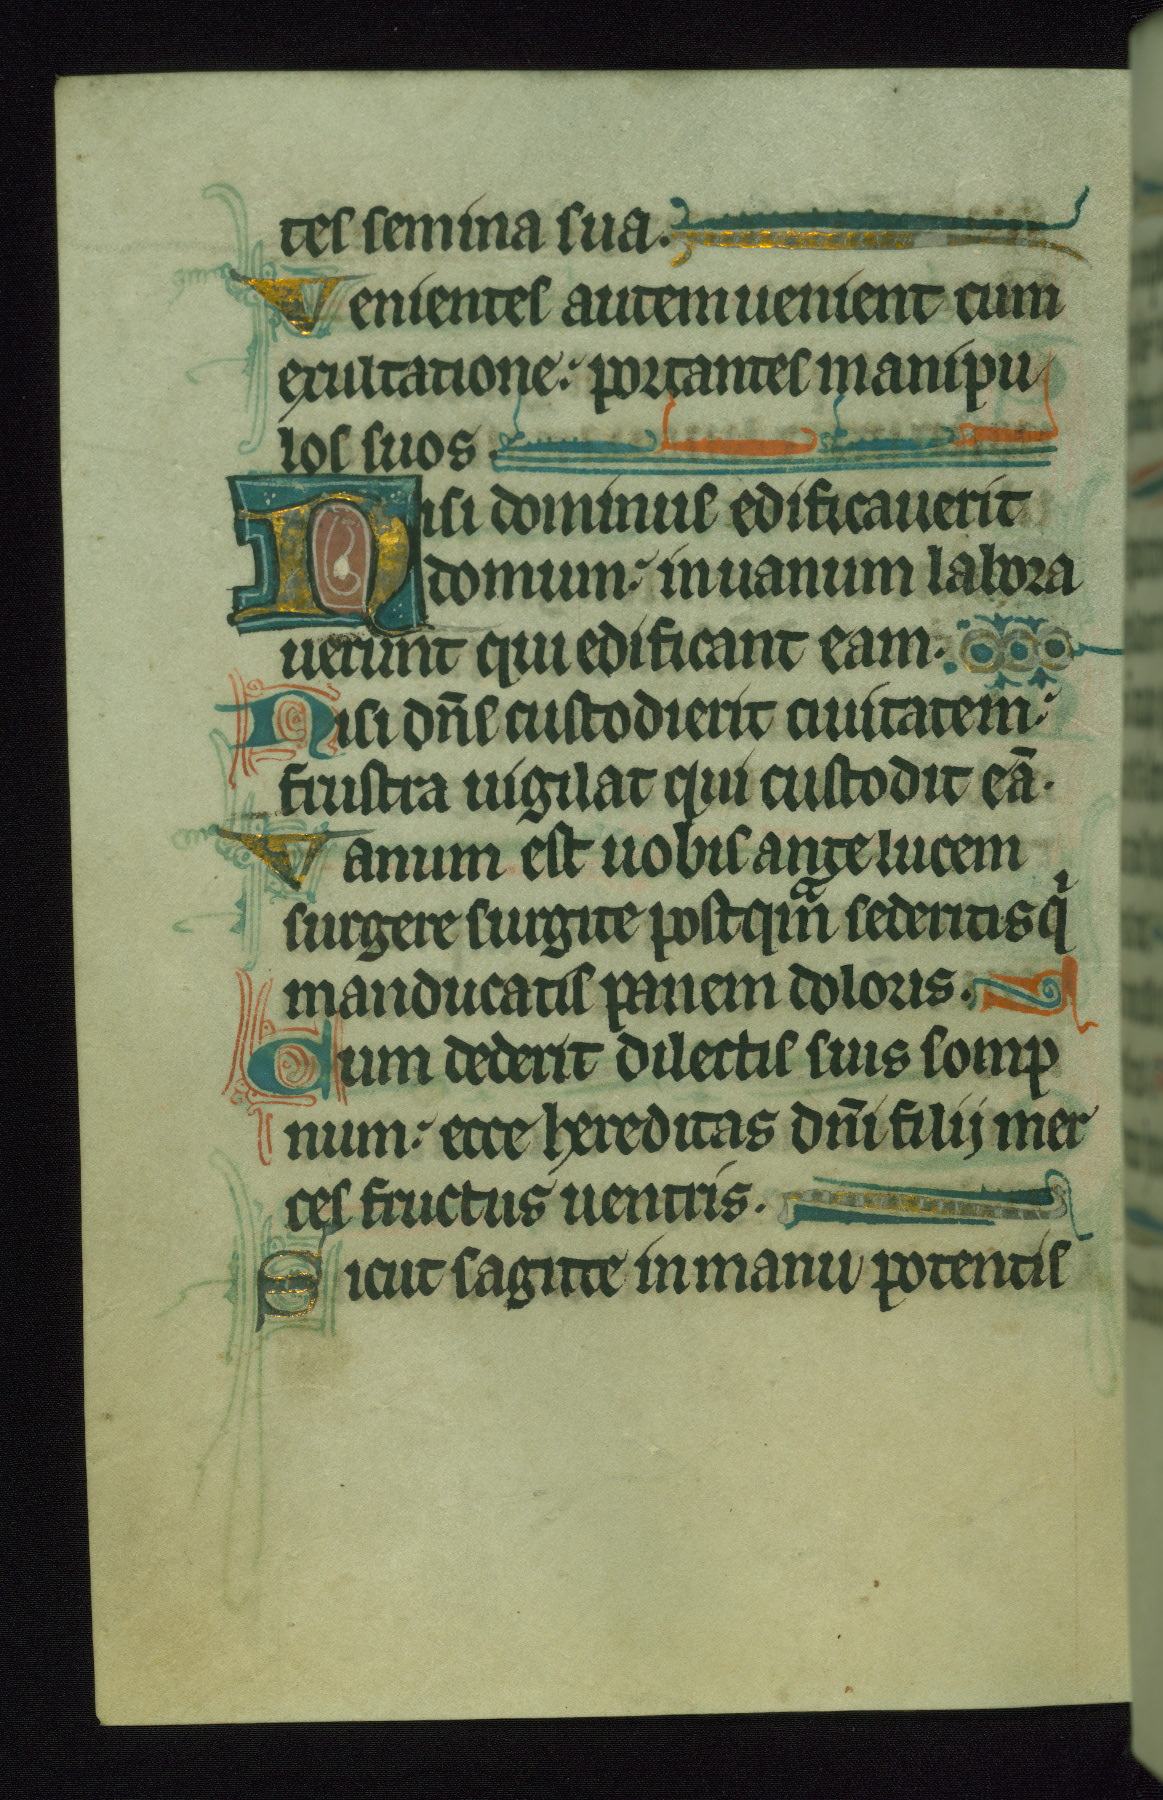 tes semina sua.
Venientes autem uenient cum
exultatione: portantes manipu
los suos.
Nisi dominus edificauerit
domum: in uanum labora
uerunt qui edificant eam.
Nisi dn̄s custodierit ciuitatem:
frustra uigilat qui custodit eā.
Vanum est uobis ante lucem
surgere surgite postqͣm̄ sederitis qͥ
manducatis panem doloris.
Cum dederit dilectis suis somp
num: ecce hereditas dn̄i filij mer
ces fructus uentris.
Sicut sagitte in manu potentis